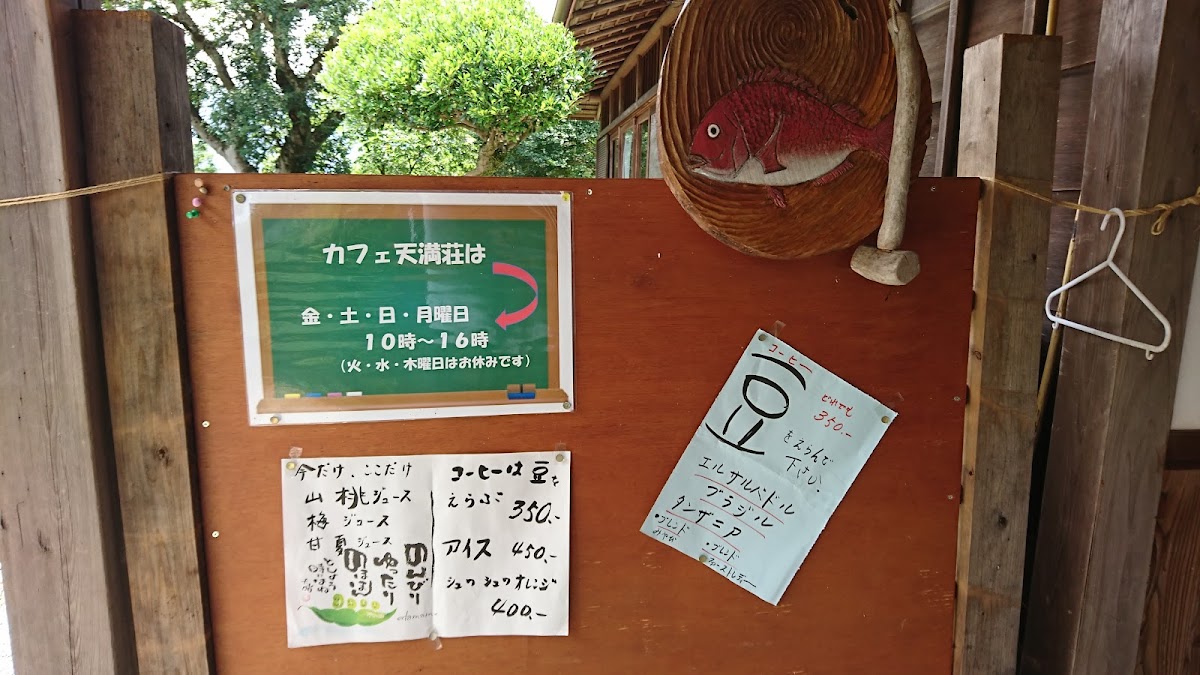 カフェ天満荘は
金・土・日・月曜日
10時～16時
（火・水・木曜日はお休みです）
今だけ、ここだけ
山桃ジュース
梅ジュース
甘夏ジュース
のんびり
ゆったり
のほほん
コーヒーは豆を
えらぶ
350.-
アイス 450.-
シュワシュワオレンジ
400.-
コーヒー
豆
どれでも
350.-
をえらんで
下さい。
エルサルバドル
ブラジル
タンザニア
・ブレンド
みやび
・ブレンド